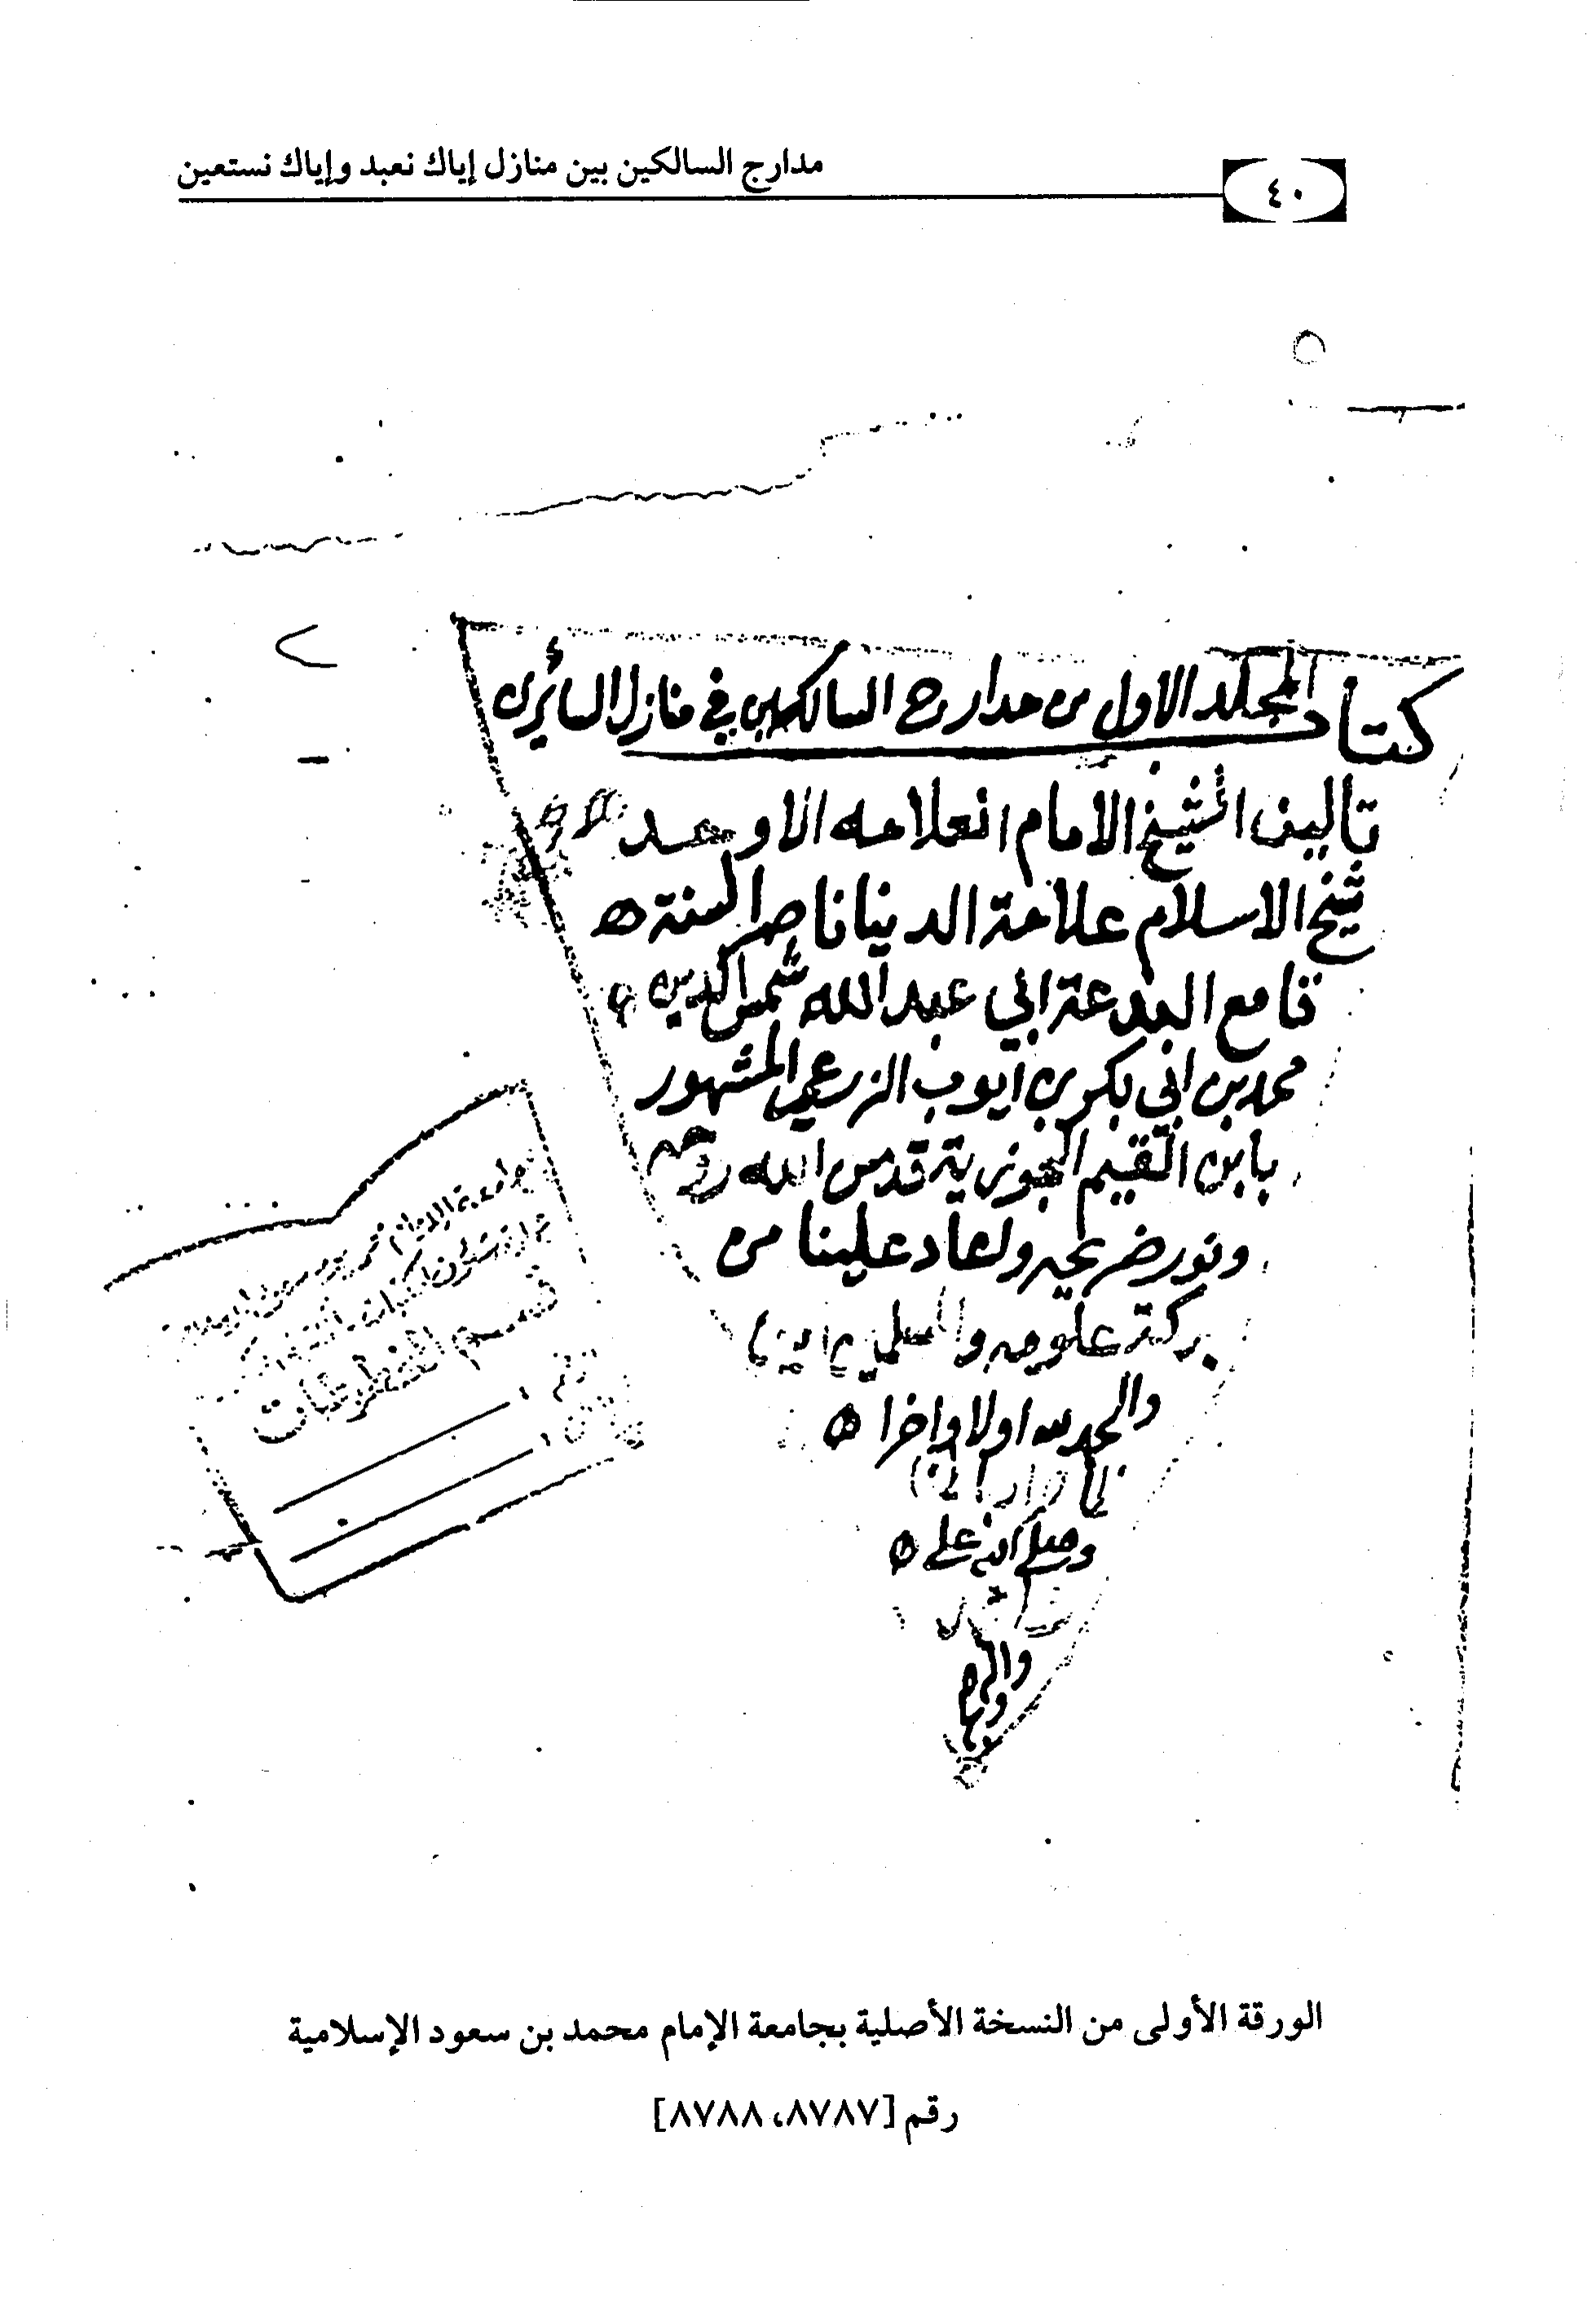 مدارج السالكين بين منازل إياك نعبد وإياك نستعين
٤٠
كتاب المجلد الاول من مدارج السالكين في منازل السائرين
تاليف الشيخ الامام العلامه الاوحد
شيخ الاسلام علامة الدنيا ناصر السنة
قامع البدعة ابي عبد الله شمس الدين
محمد بن ابي بكر بن ايوب الزرعي المشهور
بابن القيم الجوزية قدس الله روحه
ونور ضريحه ولعاد علينا من
بركة علومه والمسلمين امين
والحمد لله اولا واخرا
وصلى الله على
واله
جامعة الإمام محمد بن سعود الإسلامية
عمادة شؤون المكتبات
قسم المخطوطات
الورقة الأولى من النسخة الأصلية بجامعة الإمام محمد بن سعود الإسلامية
رقم [٨٧٨٧، ٨٧٨٨]